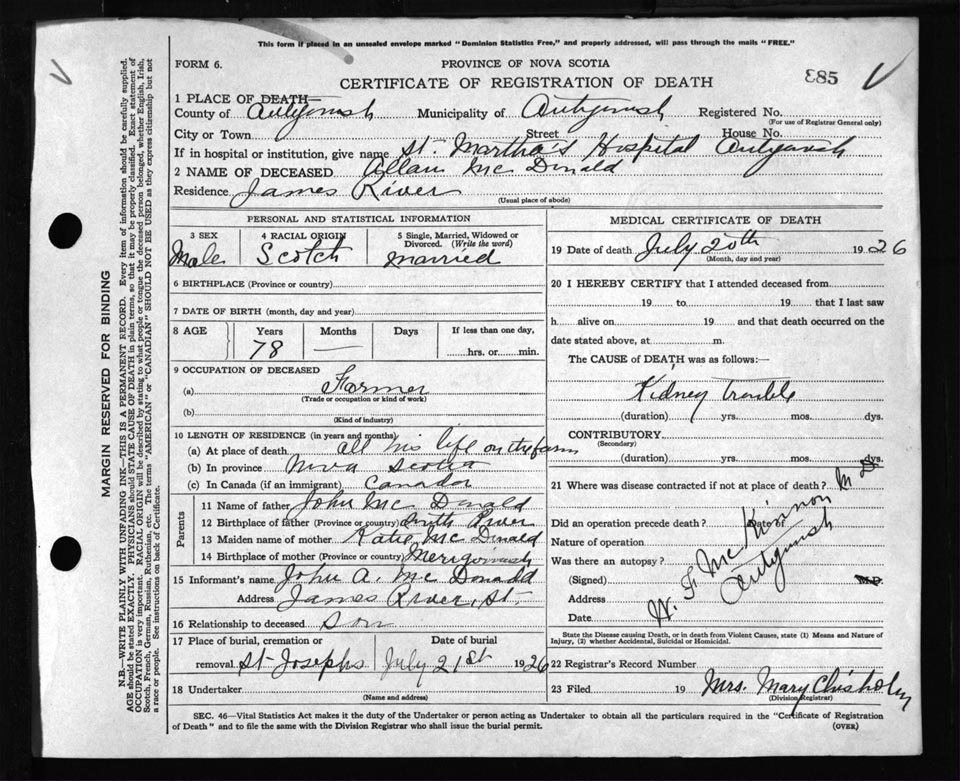 This form if placed in an unsealed envelope marked "Dominion Statistics Free," and properly addressed, will pass through the mails "FREE."
FORM 6.
PROVINCE OF NOVA SCOTIA
CERTIFICATE OF REGISTRATION OF DEATH
885
1 PLACE OF DEATH—
County of Antigonish Municipality of Antigonish Registered No.
(For use of Registrar General only)
City or Town Street House No.
If in hospital or institution, give name St. Martha's Hospital Antigonish
2 NAME OF DECEASED Allan Mc Donald
Residence James River
(Usual place of abode)
PERSONAL AND STATISTICAL INFORMATION
3 SEX 4 RACIAL ORIGIN 5 Single, Married, Widowed or Divorced. (Write the word)
Male Scotch married
6 BIRTHPLACE (Province or country)
7 DATE OF BIRTH (month, day and year)
8 AGE Years Months Days If less than one day,
78 — hrs. or min.
9 OCCUPATION OF DECEASED
(a) Farmer
(Trade or occupation or kind of work)
(b)
(Kind of industry)
10 LENGTH OF RESIDENCE (in years and months)
(a) At place of death all his life on the farm
(b) In province Nova Scotia
(c) In Canada (if an immigrant) Canada
Parents
11 Name of father John Mc Donald
12 Birthplace of father (Province or country) River
13 Maiden name of mother Katie Mc Donald
14 Birthplace of mother (Province or country)
15 Informant's name John A. Mc Donald
Address James River, St.
16 Relationship to deceased Son
17 Place of burial, cremation or Date of burial
removal St Josephs July 21st 1926
18 Undertaker
(Name and address)
MEDICAL CERTIFICATE OF DEATH
19 Date of death July 20th 1926
(Month, day and year)
20 I HEREBY CERTIFY that I attended deceased from
19 to 19 that I last saw
h alive on 19 and that death occurred on the
date stated above, at m.
The CAUSE of DEATH was as follows:—
Kidney trouble
(duration) yrs. mos. dys.
CONTRIBUTORY
(Secondary)
(duration) yrs. mos. dys.
21 Where was disease contracted if not at place of death?
Did an operation precede death? Date
Nature of operation
Was there an autopsy?
(Signed) M.D.
Address
Date
W. F. McKinnon M D
Antigonish
State the Disease causing Death, or in death from Violent Causes, state (1) Means and Nature of
Injury, (2) whether Accidental, Suicidal or Homicidal.
22 Registrar's Record Number
23 Filed 19 Mrs. Mary Chisholm
(Division Registrar)
SEC. 46—Vital Statistics Act makes it the duty of the Undertaker or person acting as Undertaker to obtain all the particulars required in the "Certificate of Registration
of Death" and to file the same with the Division Registrar who shall issue the burial permit.
(OVER)
MARGIN RESERVED FOR BINDING
N.B.—WRITE PLAINLY WITH UNFADING INK—THIS IS A PERMANENT RECORD. Every item of information should be carefully supplied.
AGE should be stated EXACTLY. PHYSICIANS should STATE CAUSE OF DEATH in plain terms, so that it may be properly classified. Exact statement of
OCCUPATION is very important. RACIAL ORIGIN will be described by stating to what people or tongue the deceased person belonged, whether English, Irish,
Scotch, French, German, Russian, Ruthenian, etc. The terms "AMERICAN" or "CANADIAN" SHOULD NOT BE USED as they express citizenship but not
a race or people. See instructions on back of Certificate.